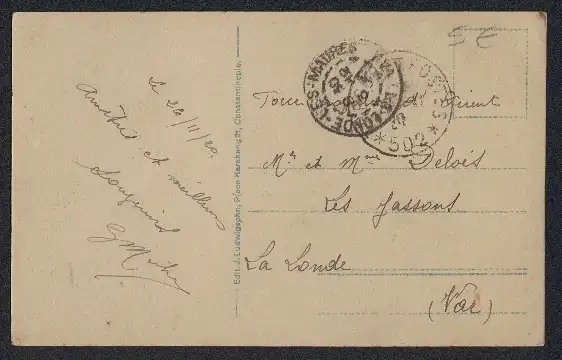 5 €
Le 26/11/20.
Amitiés et meilleurs
souvenirs
Edit. J. Ludwigsohn, Place Karakeuy 21, Constantinople.
LA LONDE-LES-MAURES
POSTES
* 502 *
20
Orient
Mr et Mme Delois
Les Jassons
La Londe
(Var)